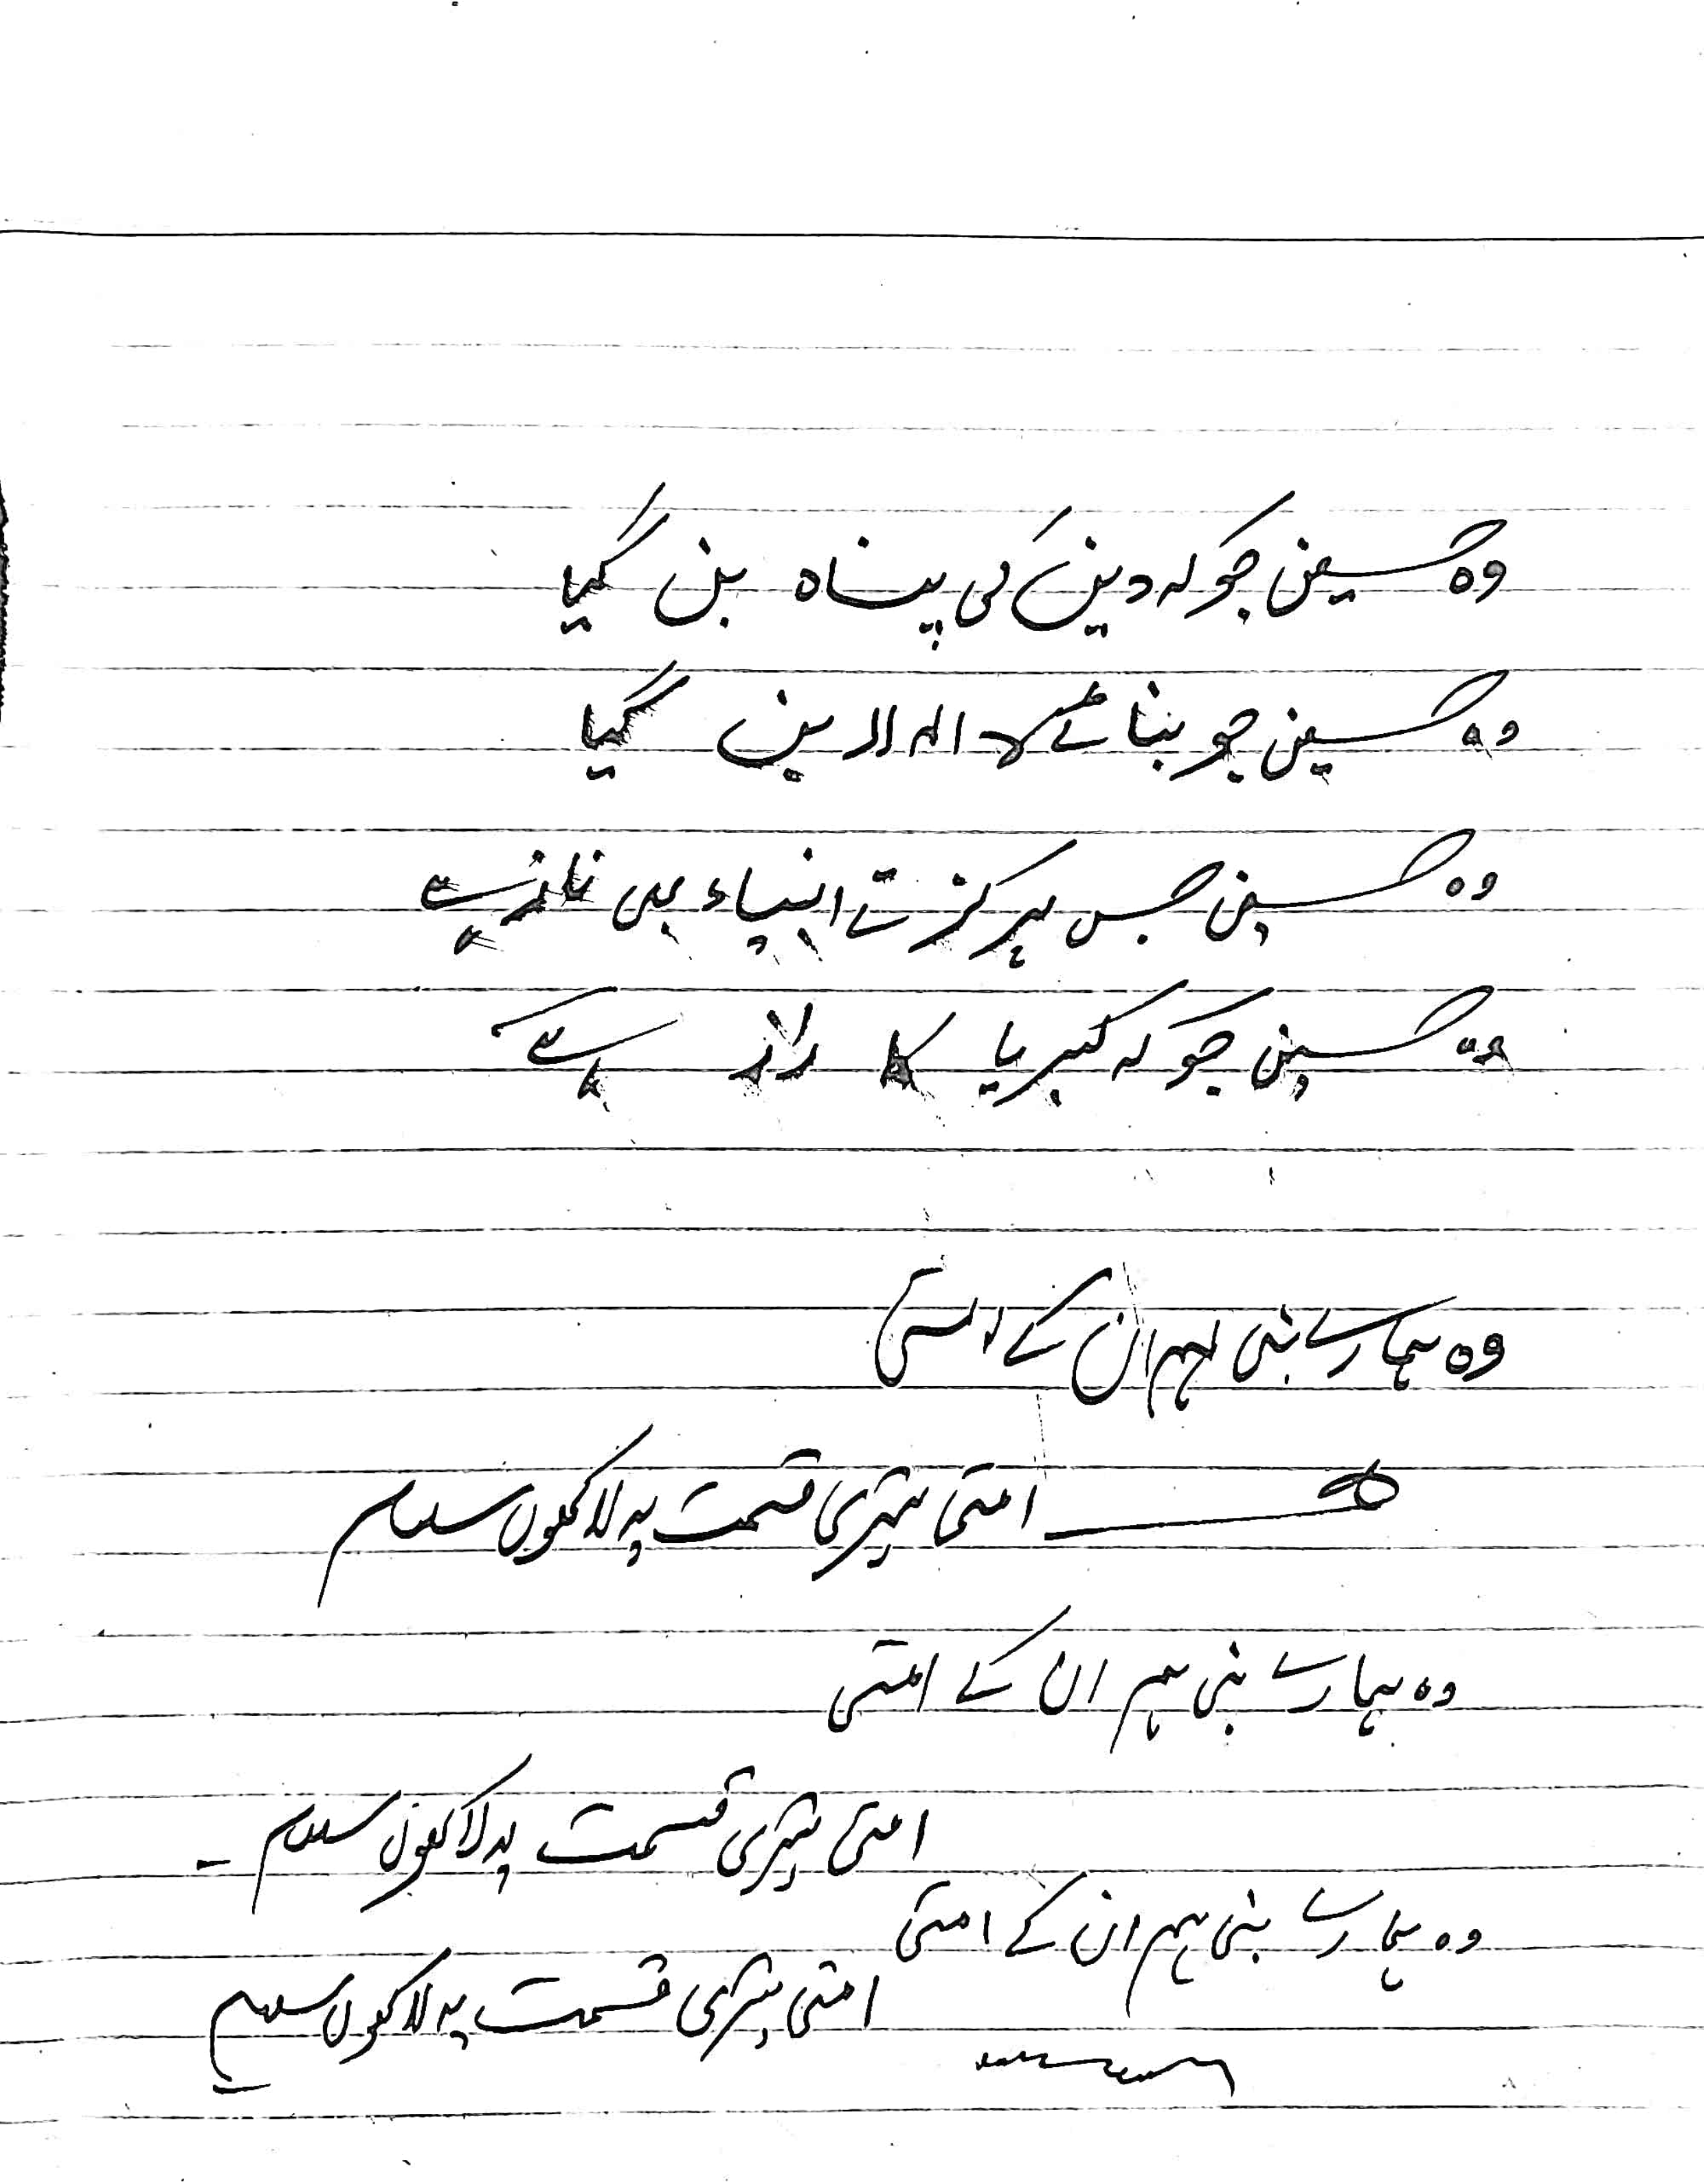 وہ حسین جو کہ دین کی پناہ بن گیا
وہ حسین جو بنائے لا الہ الا بن گیا
وہ حسین جس پر کرتے انبیاء بھی ناز ہے
وہ حسین جو کہ کبریا کا راز ہے
وہ ہمارے نبی ہم ان کے امتی
امتی تیری قسمت پہ لاکھوں سلام
وہ ہمارے نبی ہم ان کے امتی
امتی تیری قسمت پہ لاکھوں سلام ۔
وہ ہمارے نبی ہم ان کے امتی
امتی تیری قسمت پہ لاکھوں سلام